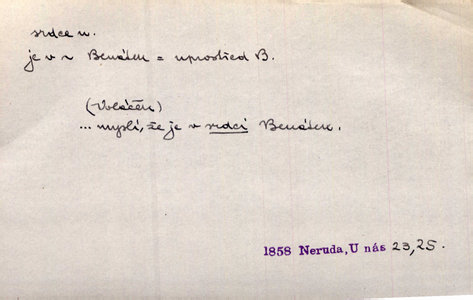 srdce n.
je v s Benátek = uprostřed B.
(Vláčěn)
... myslí, že je v srdci Benátek.
1858 Neruda, U nás 23,25.